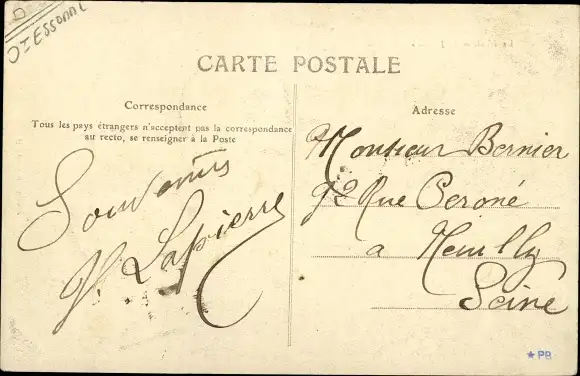 D
OIESSONNE
CARTE POSTALE
Correspondance
Tous les pays étrangers n'acceptent pas la correspondance
au recto, se renseigner à la Poste
Souvenirs
Lapierre
Adresse
Monsieur Bernier
92 Rue Peroné
a Neuilly
Seine
★ PB